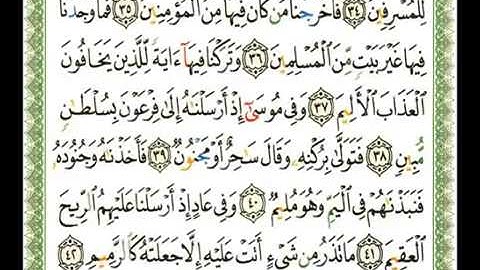 لِلْمُسْرِفِينَ ٣٤ فَأَخْرَجْنَا مَن كَانَ فِيهَا مِنَ ٱلْمُؤْمِنِينَ ٣٥ فَمَا وَجَدْنَا
فِيهَا غَيْرَ بَيْتٍ مِّنَ ٱلْمُسْلِمِينَ ٣٦ وَتَرَكْنَا فِيهَآ ءَايَةً لِّلَّذِينَ يَخَافُونَ
ٱلْعَذَابَ ٱلْأَلِيمَ ٣٧ وَفِي مُوسَىٰٓ إِذْ أَرْسَلْنَٰهُ إِلَىٰ فِرْعَوْنَ بِسُلْطَٰنٍ
مُّبِينٍ ٣٨ فَتَوَلَّىٰ بِرُكْنِهِۦ وَقَالَ سَٰحِرٌ أَوْ مَجْنُونٌ ٣٩ فَأَخَذْنَٰهُ وَجُنُودَهُۥ
فَنَبَذْنَٰهُمْ فِي ٱلْيَمِّ وَهُوَ مُلِيمٌ ٤٠ وَفِي عَادٍ إِذْ أَرْسَلْنَا عَلَيْهِمُ ٱلرِّيحَ
ٱلْعَقِيمَ ٤١ مَا تَذَرُ مِن شَيْءٍ أَتَتْ عَلَيْهِ إِلَّا جَعَلَتْهُ كَٱلرَّمِيمِ ٤٢